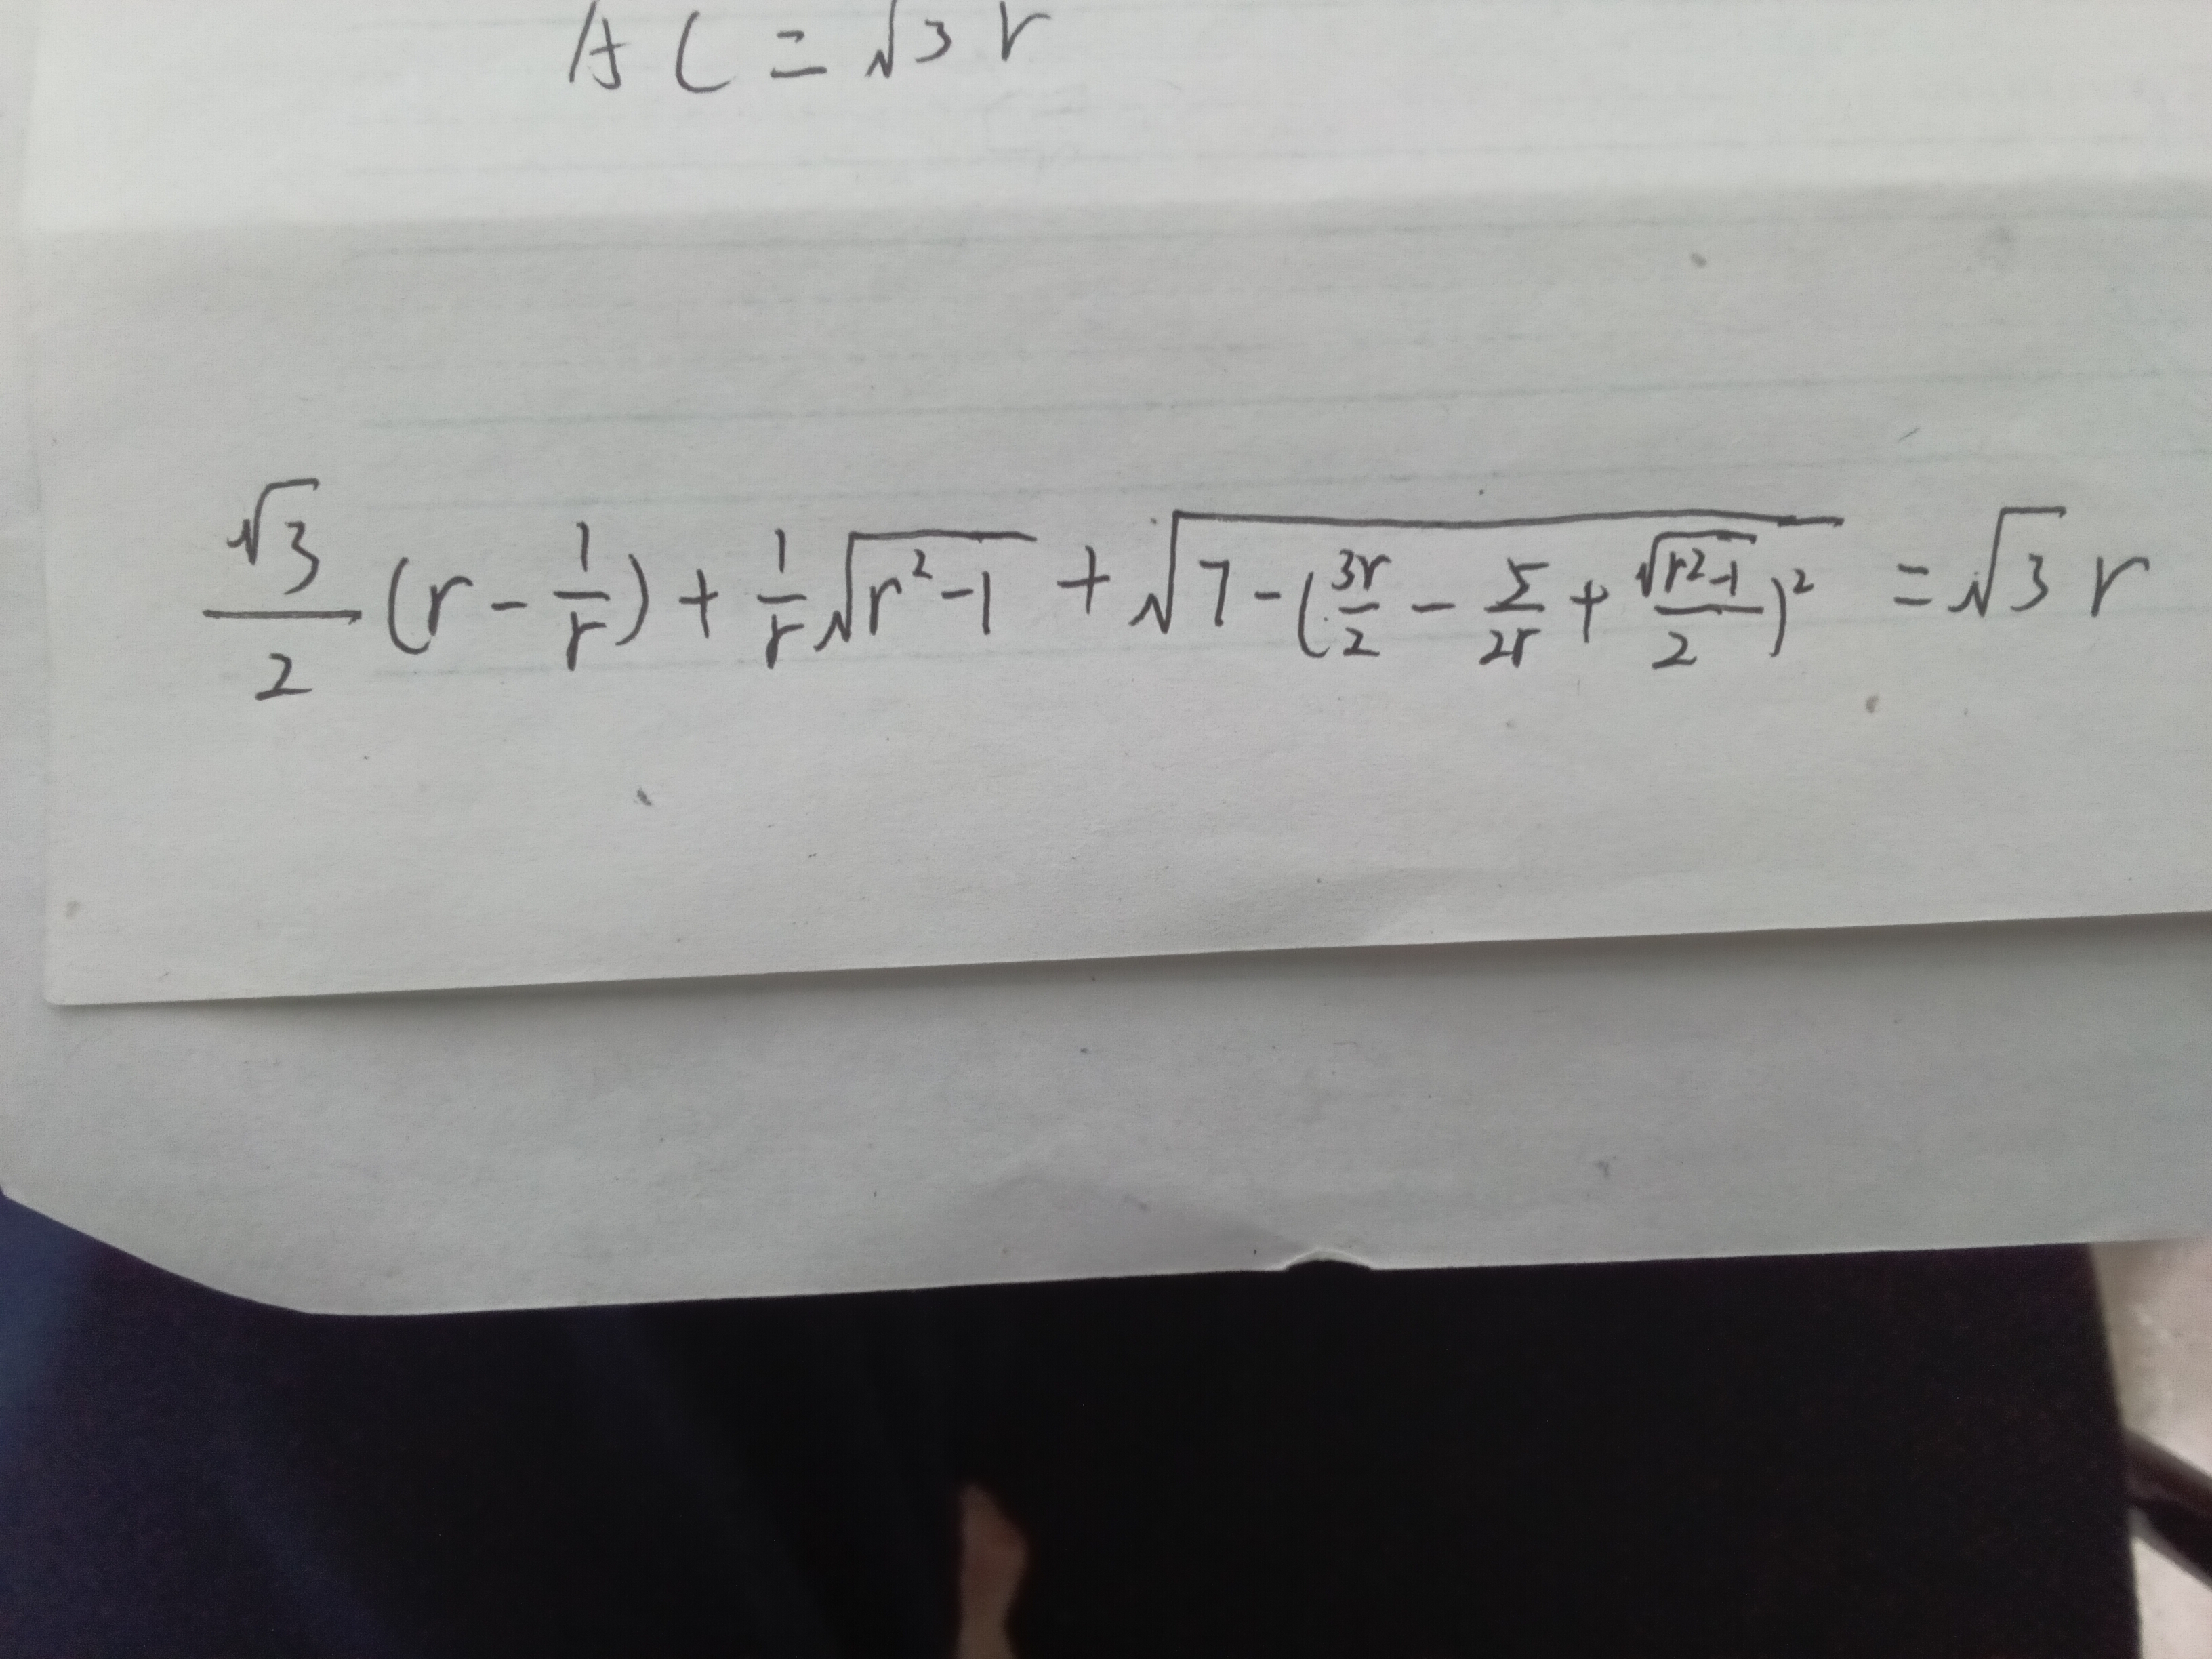 AC = √3 r
√3/2 (r - 1/r) + 1/r √(r² - 1) + √(7 - (3r/2 - 5/2r + √(r² - 1)/2)²) = √3 r